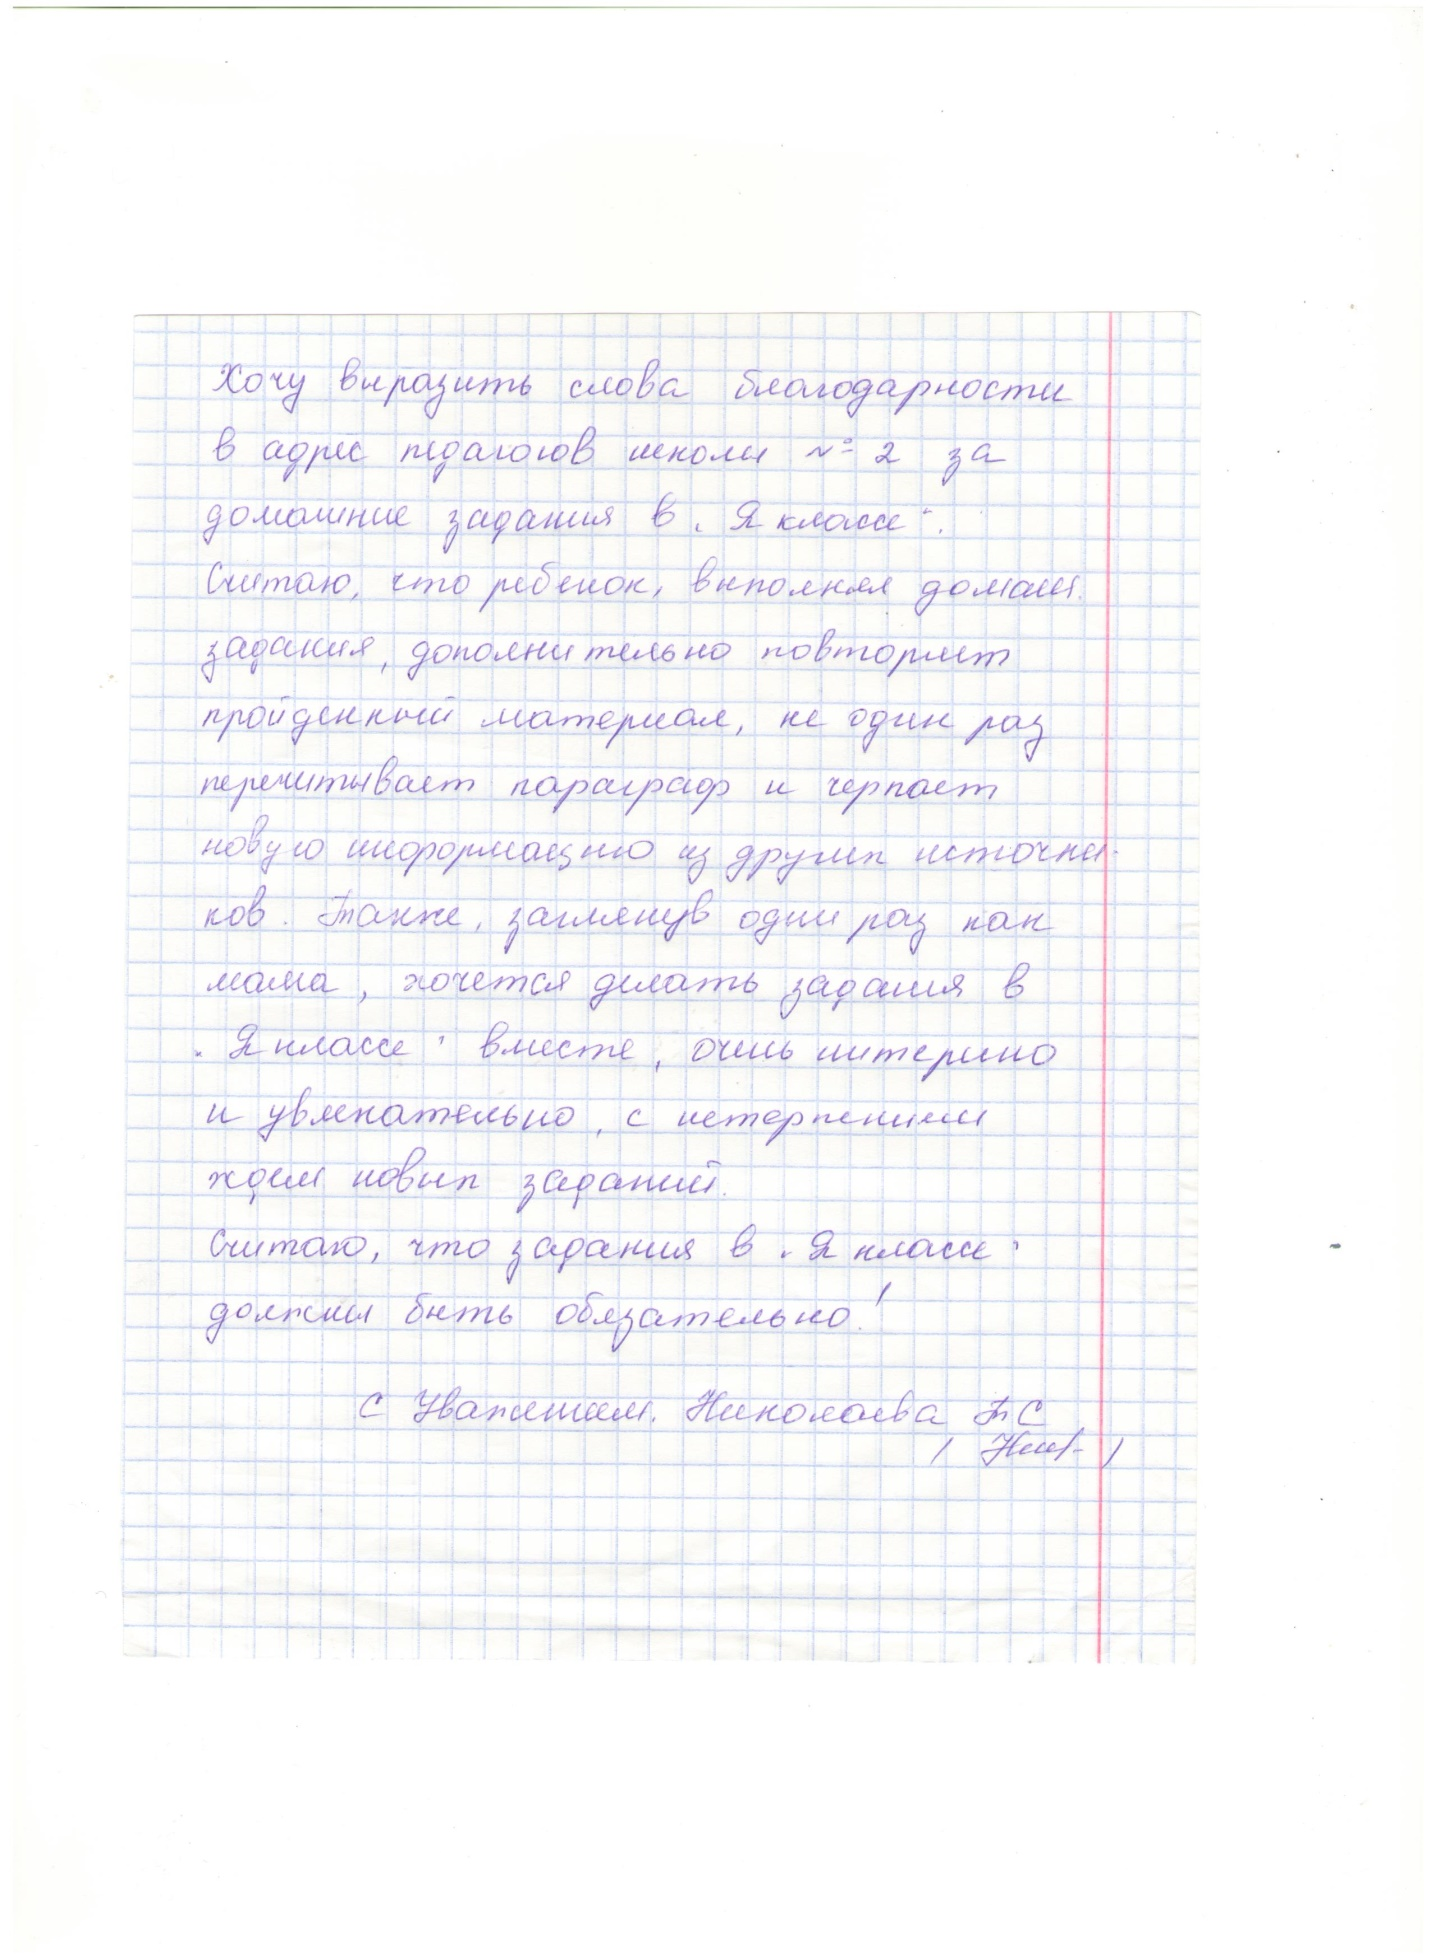 Хочу выразить слова благодарности
в адрес педагогов школы № 2 за
домашние задания в "Я классе".
Считаю, что ребенок, выполняя домаш.
задания, дополнительно повторяет
пройденный материал, не один раз
перечитывает параграф и черпает
новую информацию из других источни-
ков. Также, заглянув один раз как
мама, хочется делать задания в
"Я классе" вместе, очень интересно
и увлекательно, с нетерпением
ждем новых заданий.
Считаю, что задания в "Я классе"
должны быть обязательно!
С Уважением. Николаева ТС